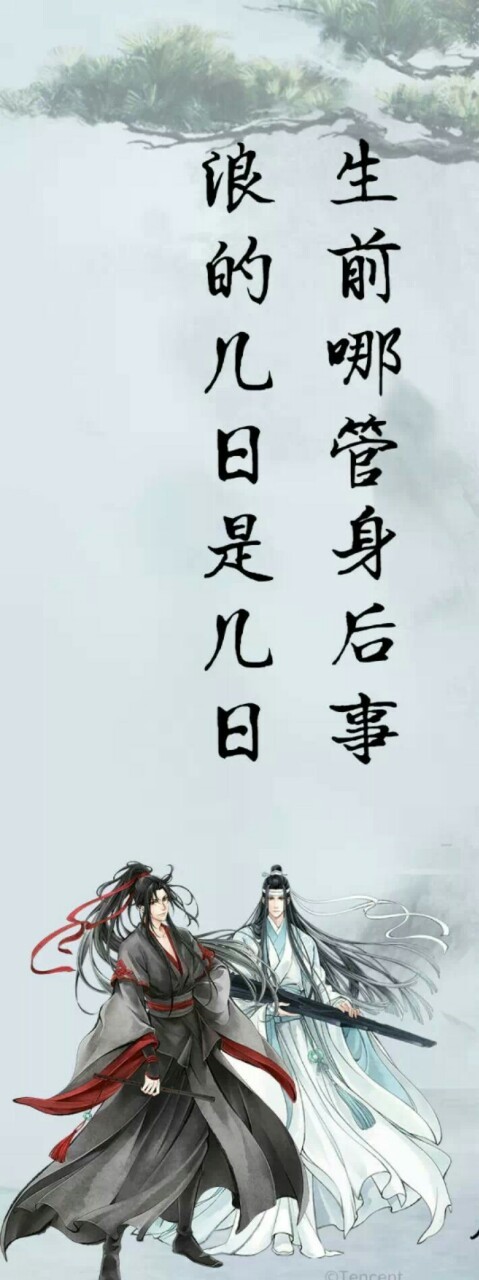 生前哪管身后事
浪的几日是几日
©Tencent